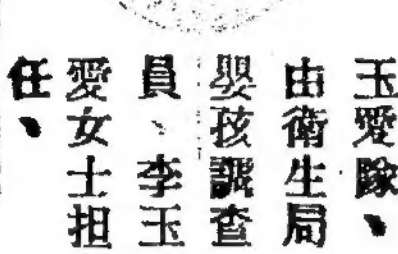 玉愛隊、
由衛生局
嬰孩調查
員、李玉
愛女士担
任、